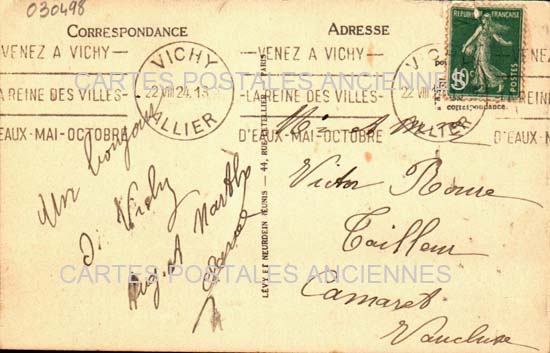 030498
CORRESPONDANCE
ADRESSE
RÉPUBLIQUE FRANÇAISE
POSTES
10c
VENEZ A VICHY
LA REINE DES VILLES-
D'EAUX-MAI-OCTOBRE
VICHY
22 VIII 24
ALLIER
-VENEZ A VICHY-
-LA REINE DES VILLES-
D'EAUX-MAI-OCTOBRE
22 VIII
D'EAUX-M
correspondance.
CARTES POSTALES ANCIENNES
CARTES POSTALES ANCIENNES
LÉVY ET NEURDEIN RÉUNIS — 44, RUE LETELLIER, PARIS
Un bonjour
de Vichy
Victor
Tailleur
Camaret
Vaucluse